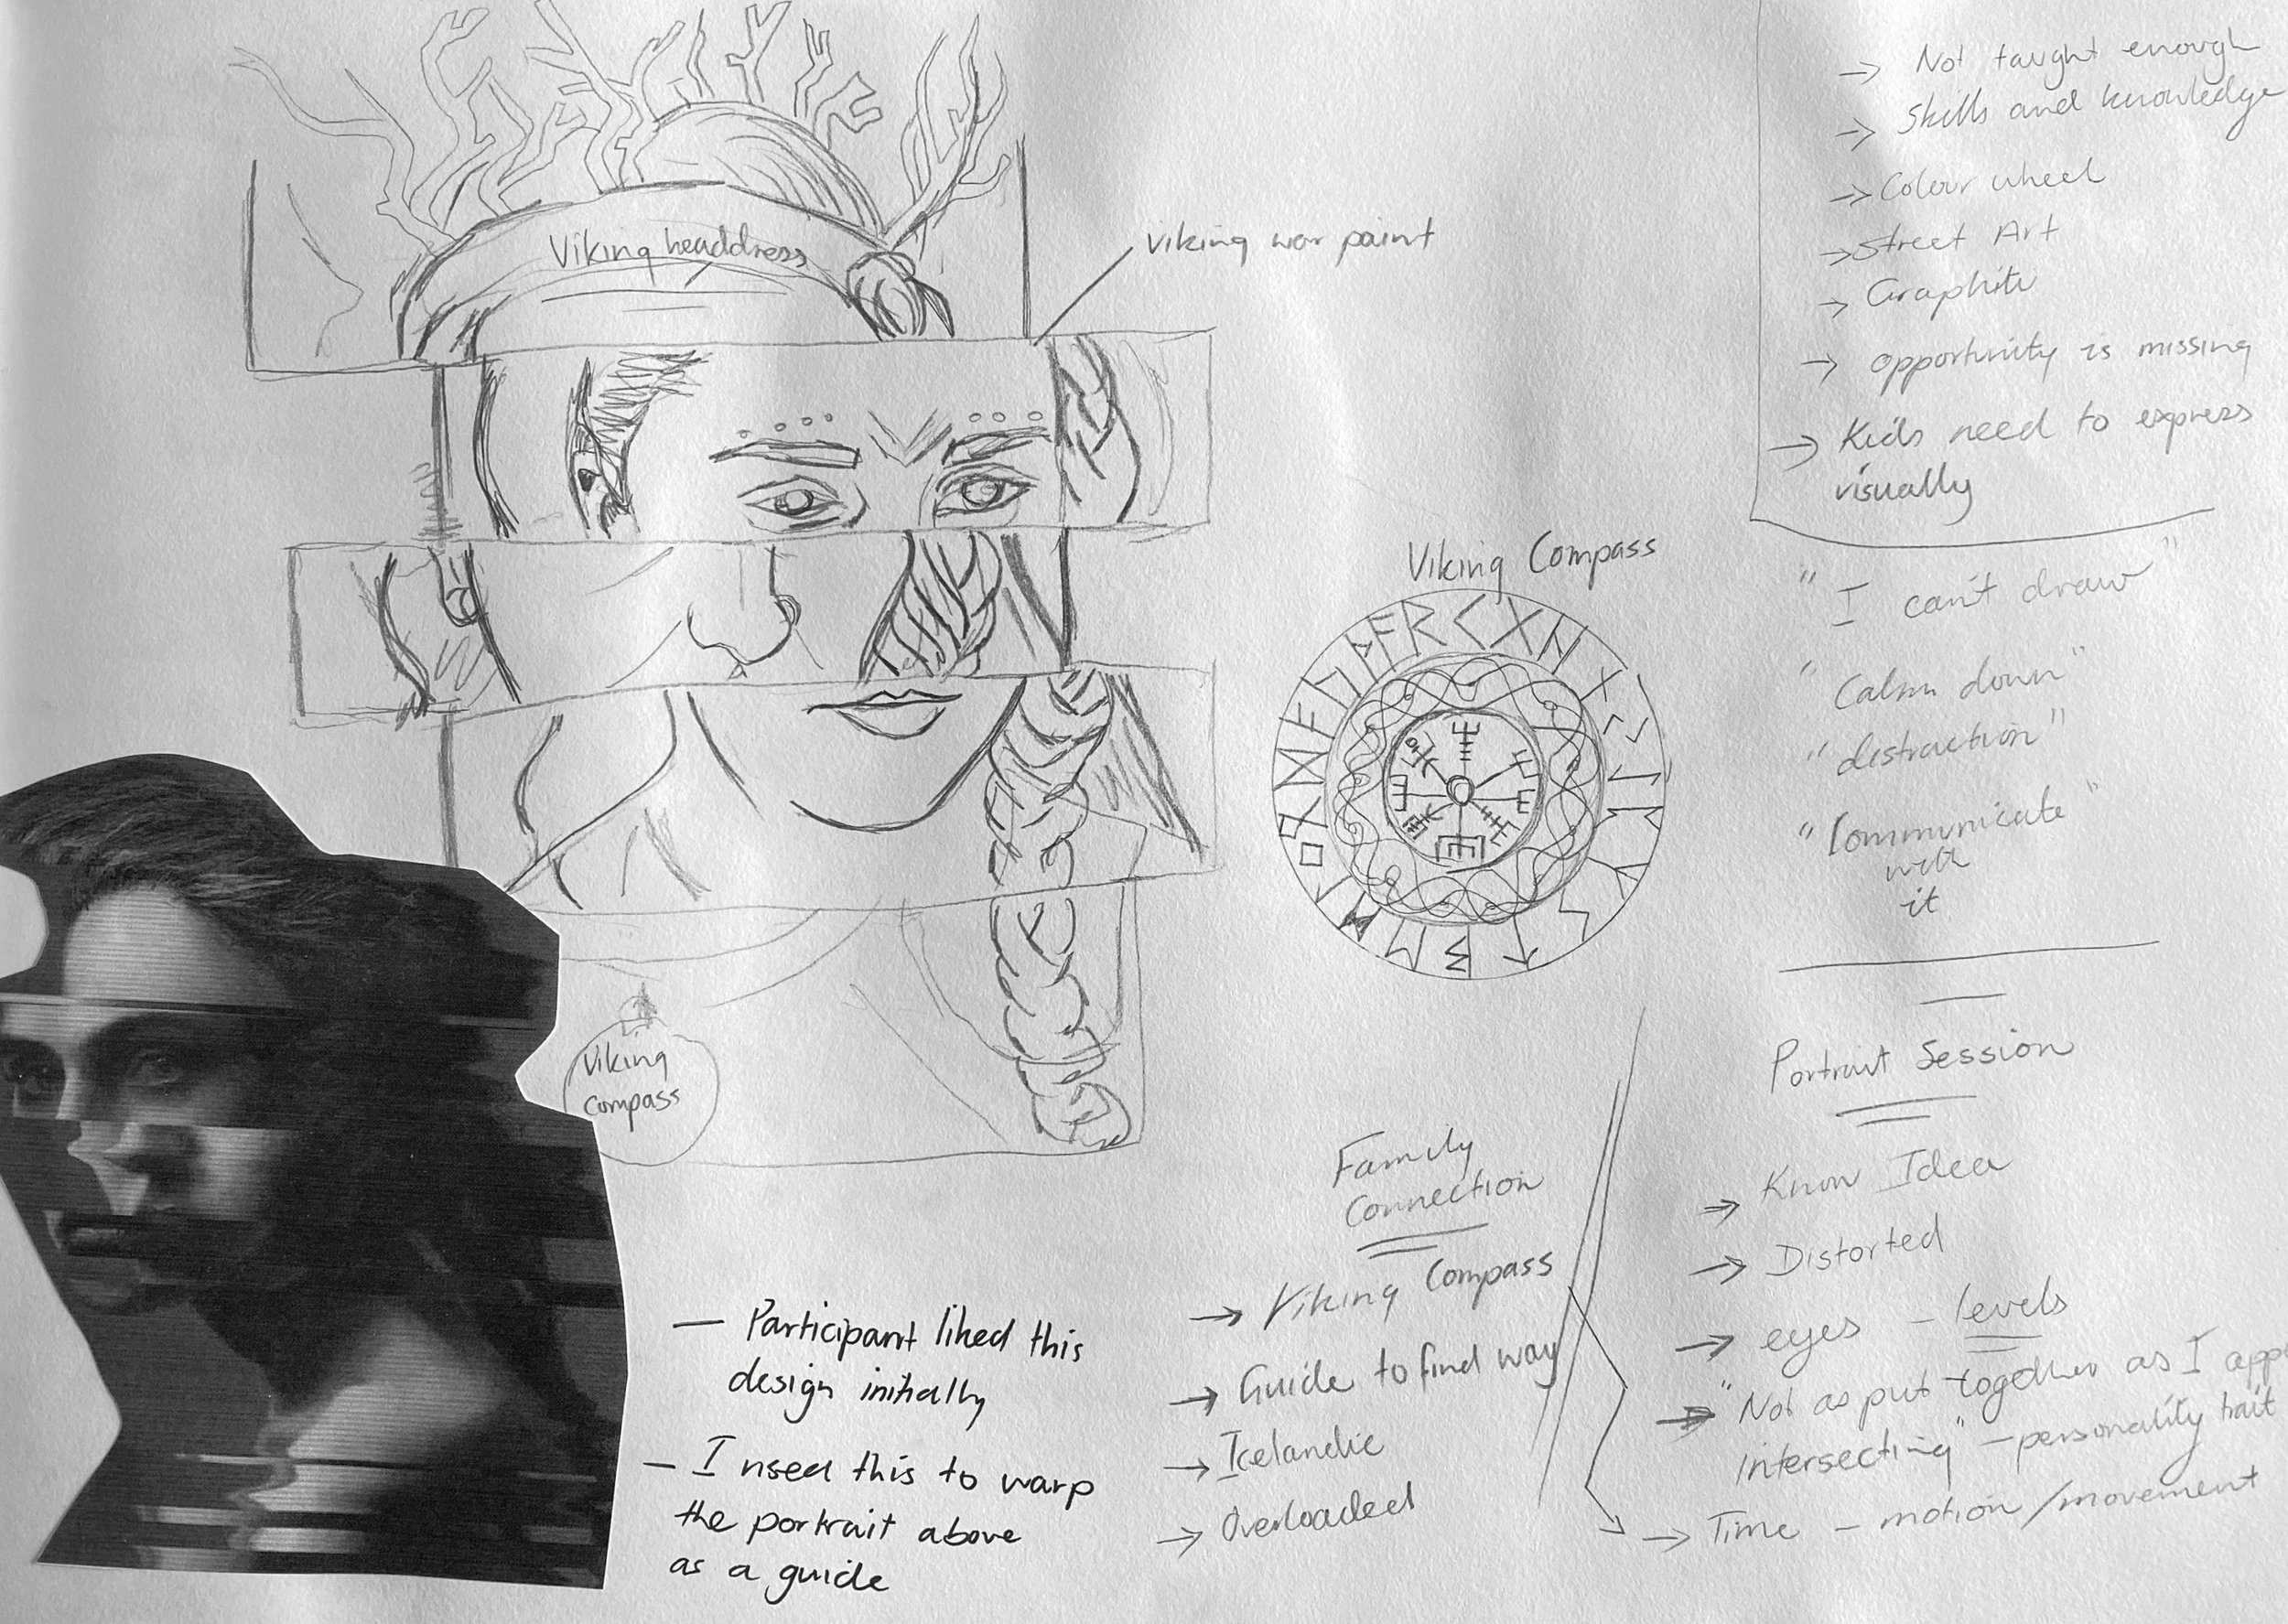 Viking headdress
Viking war paint
→ Not taught enough
→ Skills and knowledge
→ Colour wheel
→ Street Art
→ Graphiti
→ opportunity is missing
→ Kids need to express
visually
Viking Compass
"I can't draw"
"Calm down"
"distraction"
"Communicate
with
it"
Viking
Compass
— Participant liked this
design initially
— I used this to warp
the portrait above
as a guide
Family
Connection
→ Viking Compass
→ Guide to find way
→ Icelandic
→ Overloaded
Portrait Session
→ Know Idea
→ Distorted
→ eyes – levels
→ "Not as put together as I
Intersecting" – personality trait
→ Time – motion/movement